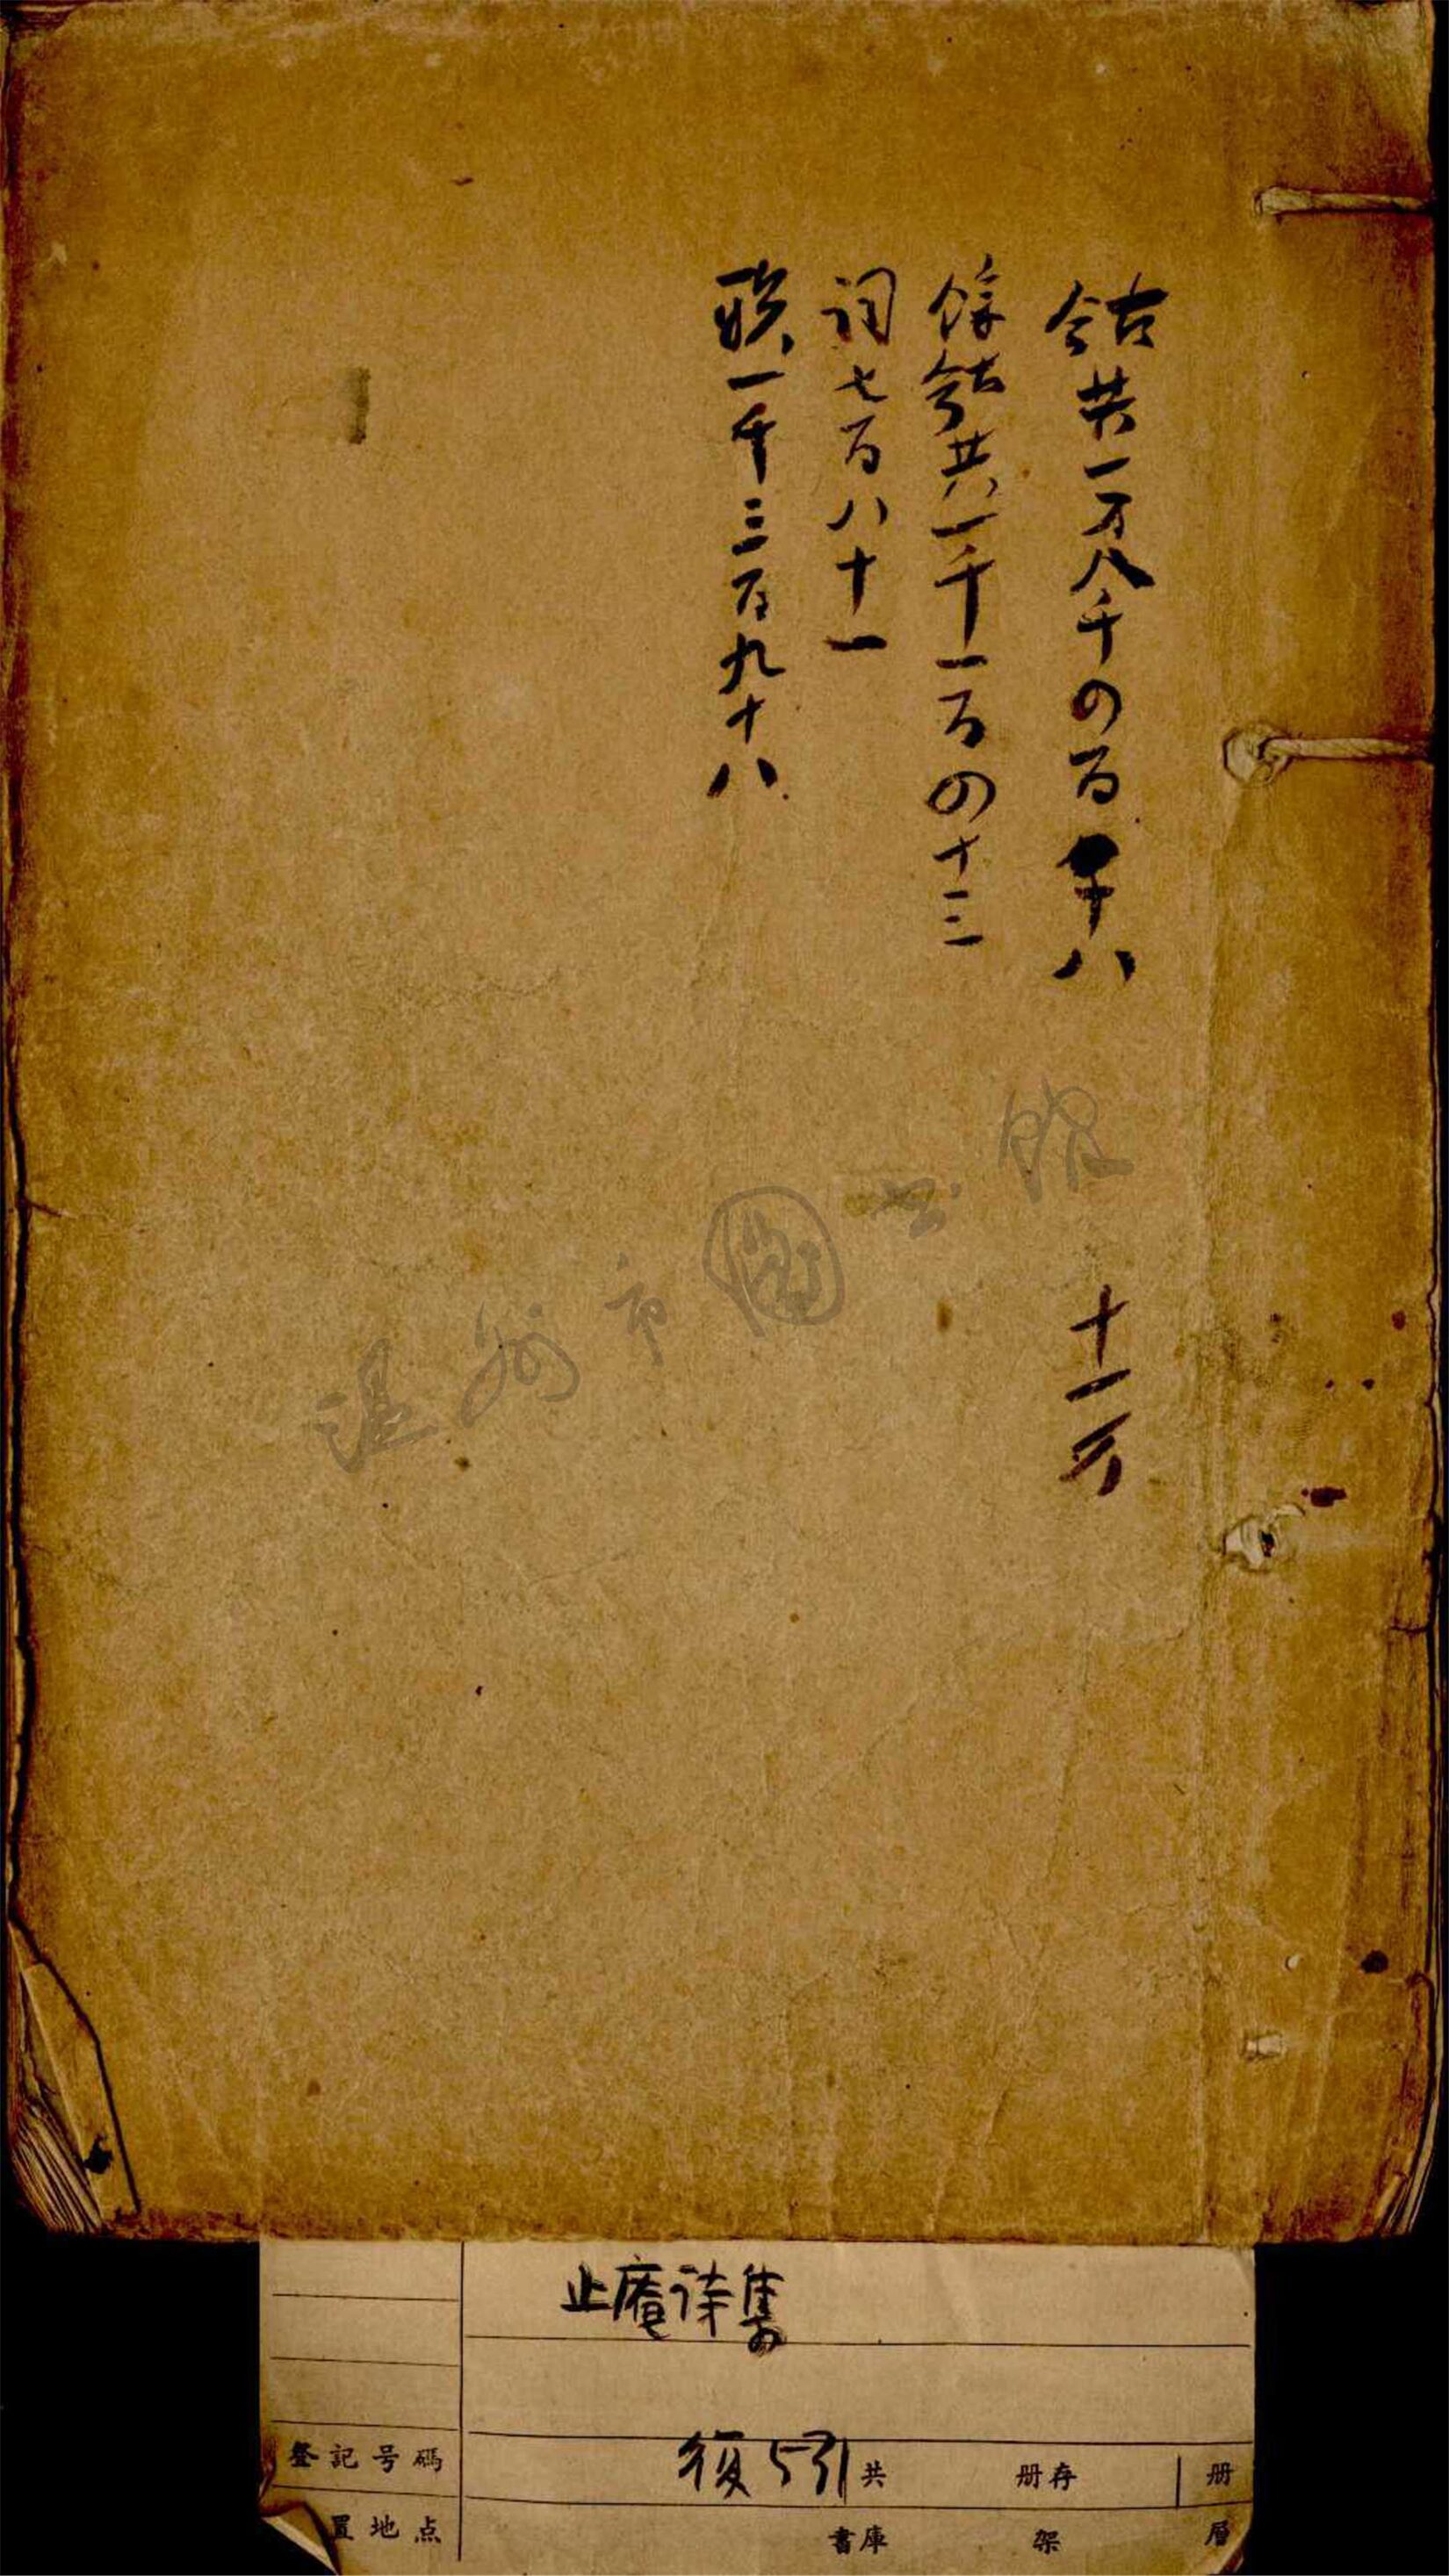 今古共一万八千四百十八
十一字
餘今古共一千一百四十三
詞七百八十一
联一千三百九十八
温州市圖书館
止庵诗集
復531
共 册存 册
登記号碼
置地点
書庫 架 層